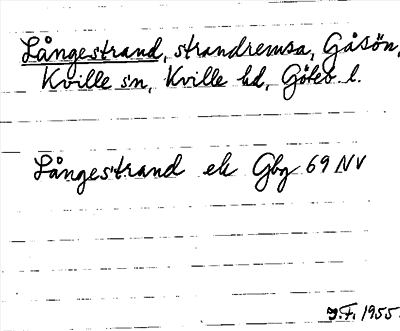 Långestrand, strandremsa, Gåsön,
Kville s:n, Kville hd, Göteb l.
Långestrand ek Gbg 69 NV
J.F. 1955.